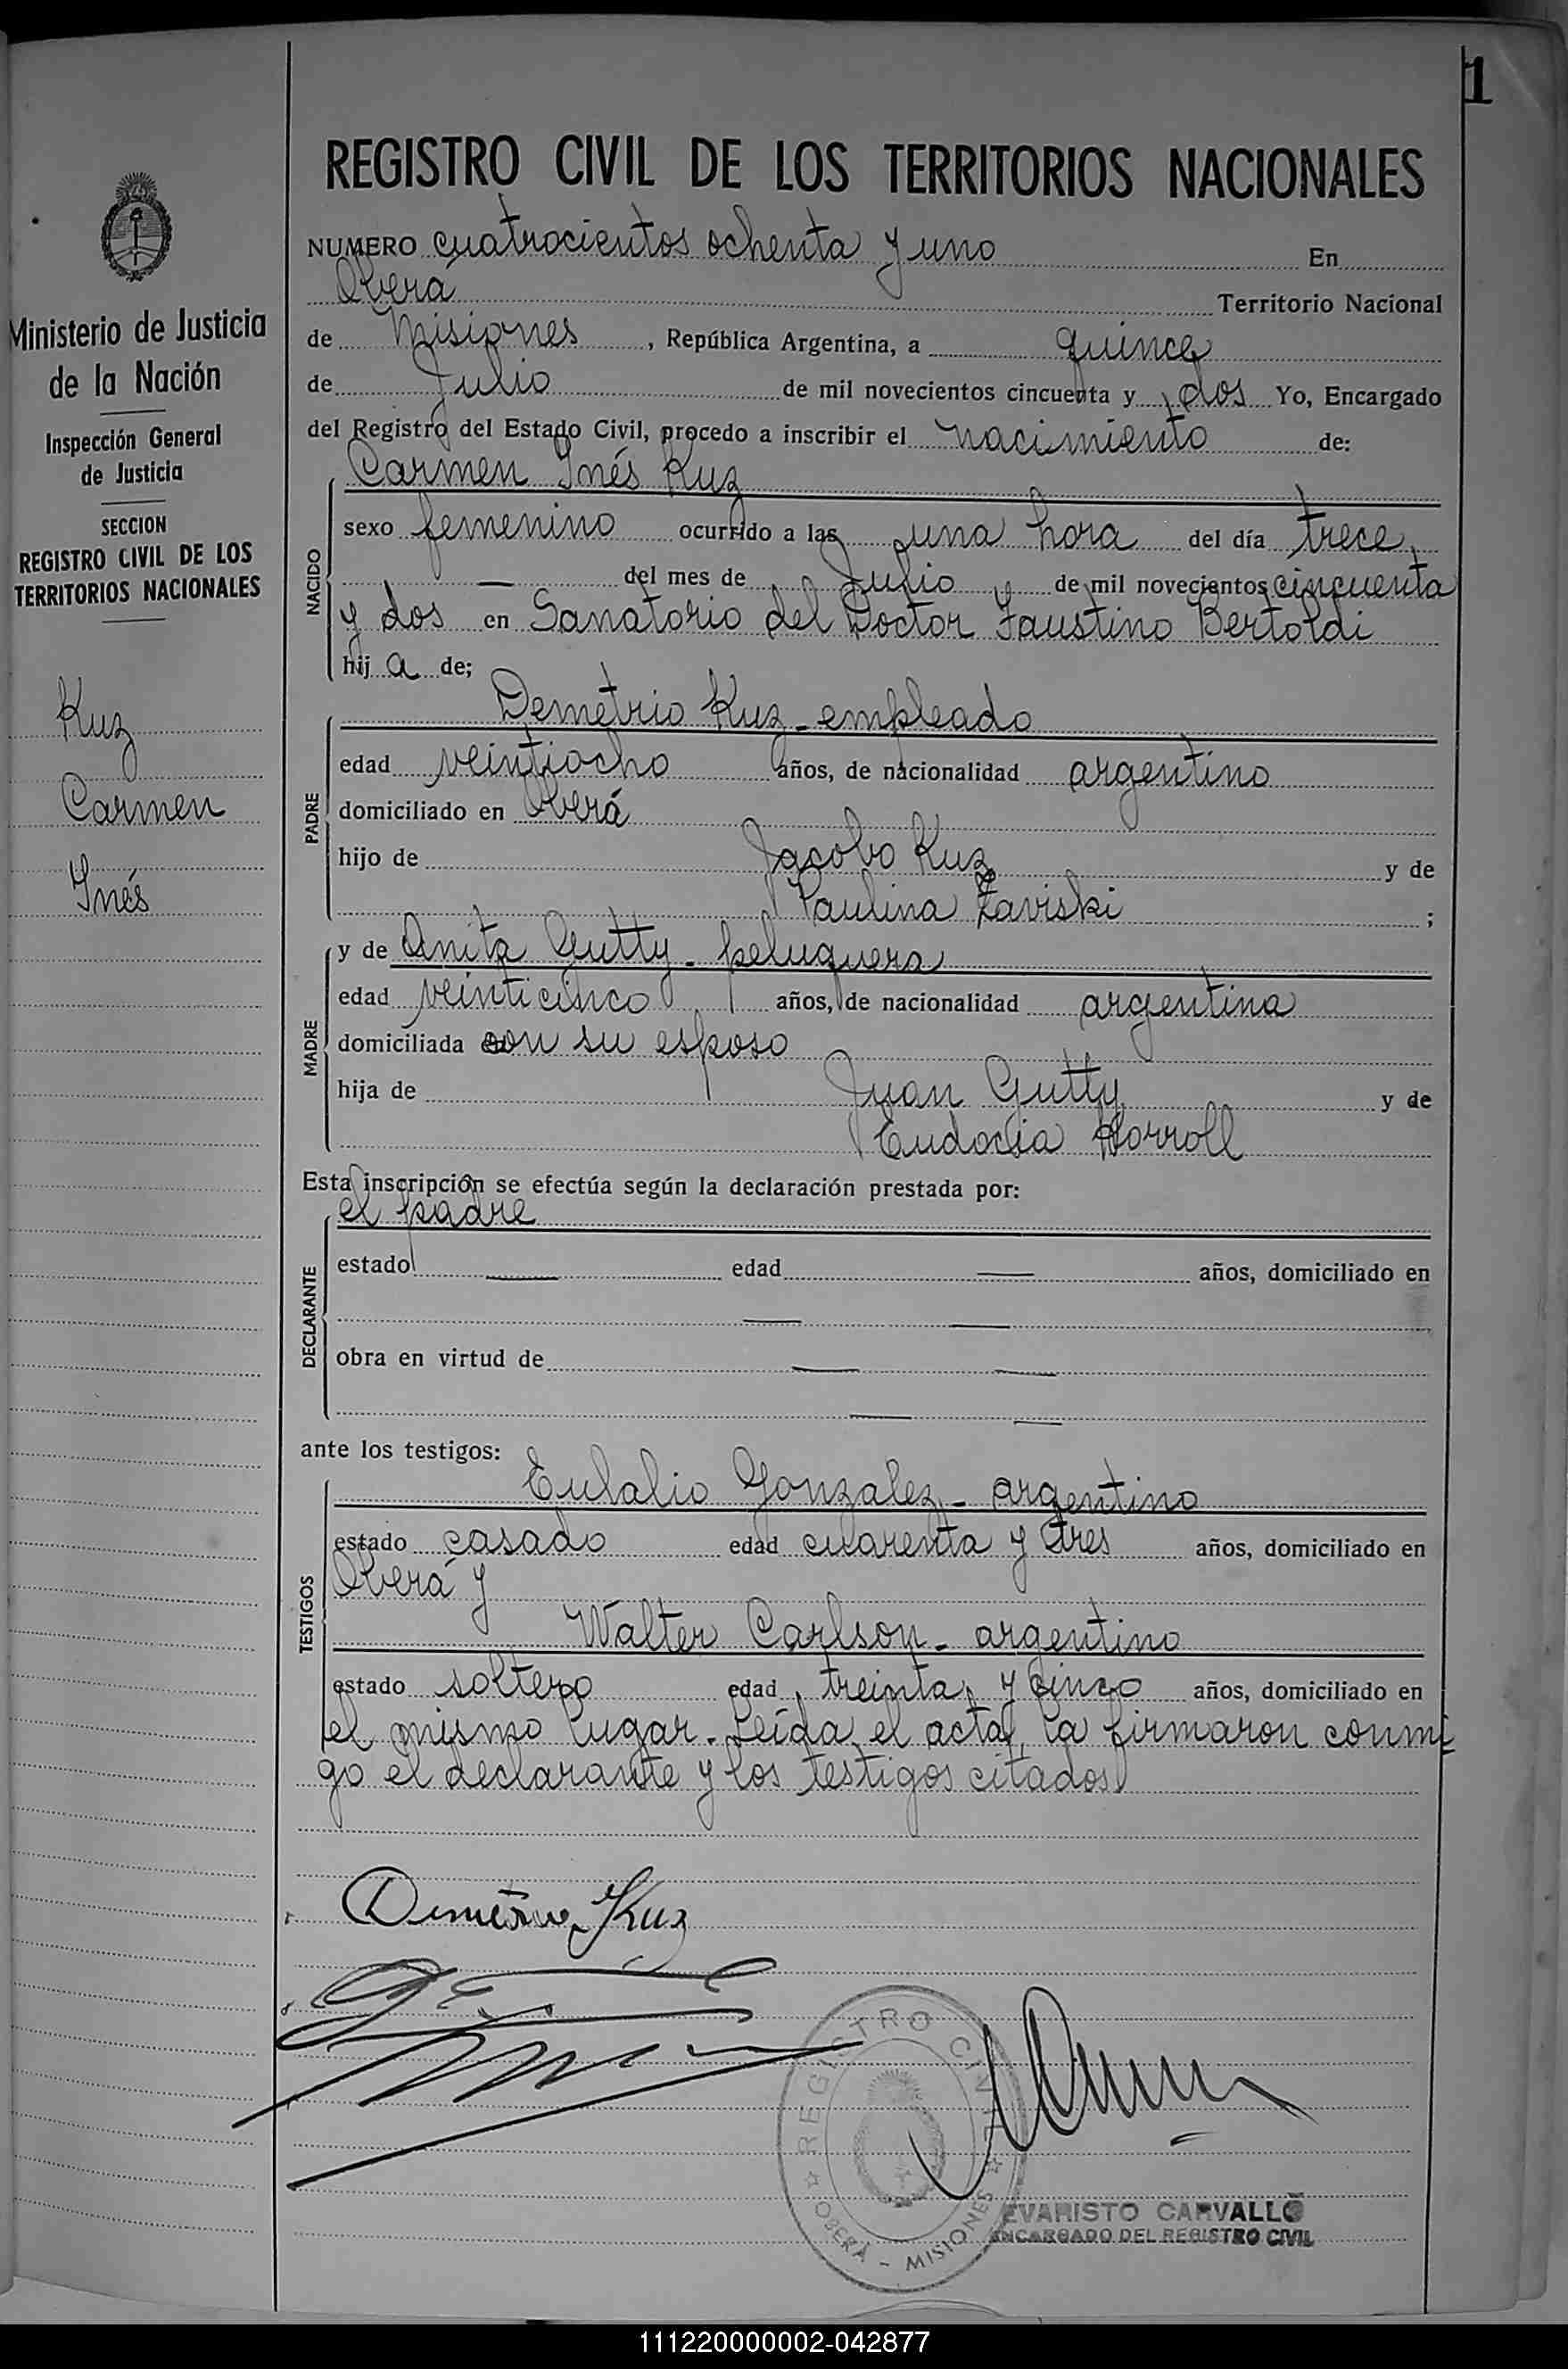 1
REGISTRO CIVIL DE LOS TERRITORIOS NACIONALES
NUMERO cuatrocientos ochenta y uno En
Oberá Territorio Nacional
de Misiones, República Argentina, a quince
de Julio de mil novecientos cincuenta y dos Yo, Encargado
del Registro del Estado Civil, procedo a inscribir el nacimiento de:
Carmen Inés Kuz
NACIDO
sexo femenino ocurrido a las una hora del día trece
— del mes de Julio de mil novecientos cincuenta
y dos en Sanatorio del Doctor Faustino Bertoldi
hij a de;
PADRE
Demetrio Kuz - empleado
edad veintiocho años, de nacionalidad argentino
domiciliado en Oberá
hijo de Jacobo Kuz y de
Paulina Zaviski ;
MADRE
y de Anita Gutty - peluquera
edad veinticinco años, de nacionalidad argentina
domiciliada con su esposo
hija de Juan Gutty y de
Eudocia Horroll
Esta inscripción se efectúa según la declaración prestada por:
DECLARANTE
el padre
estado — edad — años, domiciliado en
— —
obra en virtud de — —
— —
ante los testigos:
TESTIGOS
Eulalio Gonzalez - argentino
estado casado edad cuarenta y tres años, domiciliado en
Oberá y
Walter Carlson - argentino
estado soltero edad treinta y cinco años, domiciliado en
el mismo lugar. Leída el acta, la firmaron conmi
go el declarante y los testigos citados
Demetrio Kuz
REGISTRO CIVIL
OBERÁ - MISIONES
EVARISTO CARVALLO
ENCARGADO DEL REGISTRO CIVIL
Ministerio de Justicia
de la Nación
Inspección General
de Justicia
SECCION
REGISTRO CIVIL DE LOS
TERRITORIOS NACIONALES
Kuz
Carmen
Inés
111220000002-042877